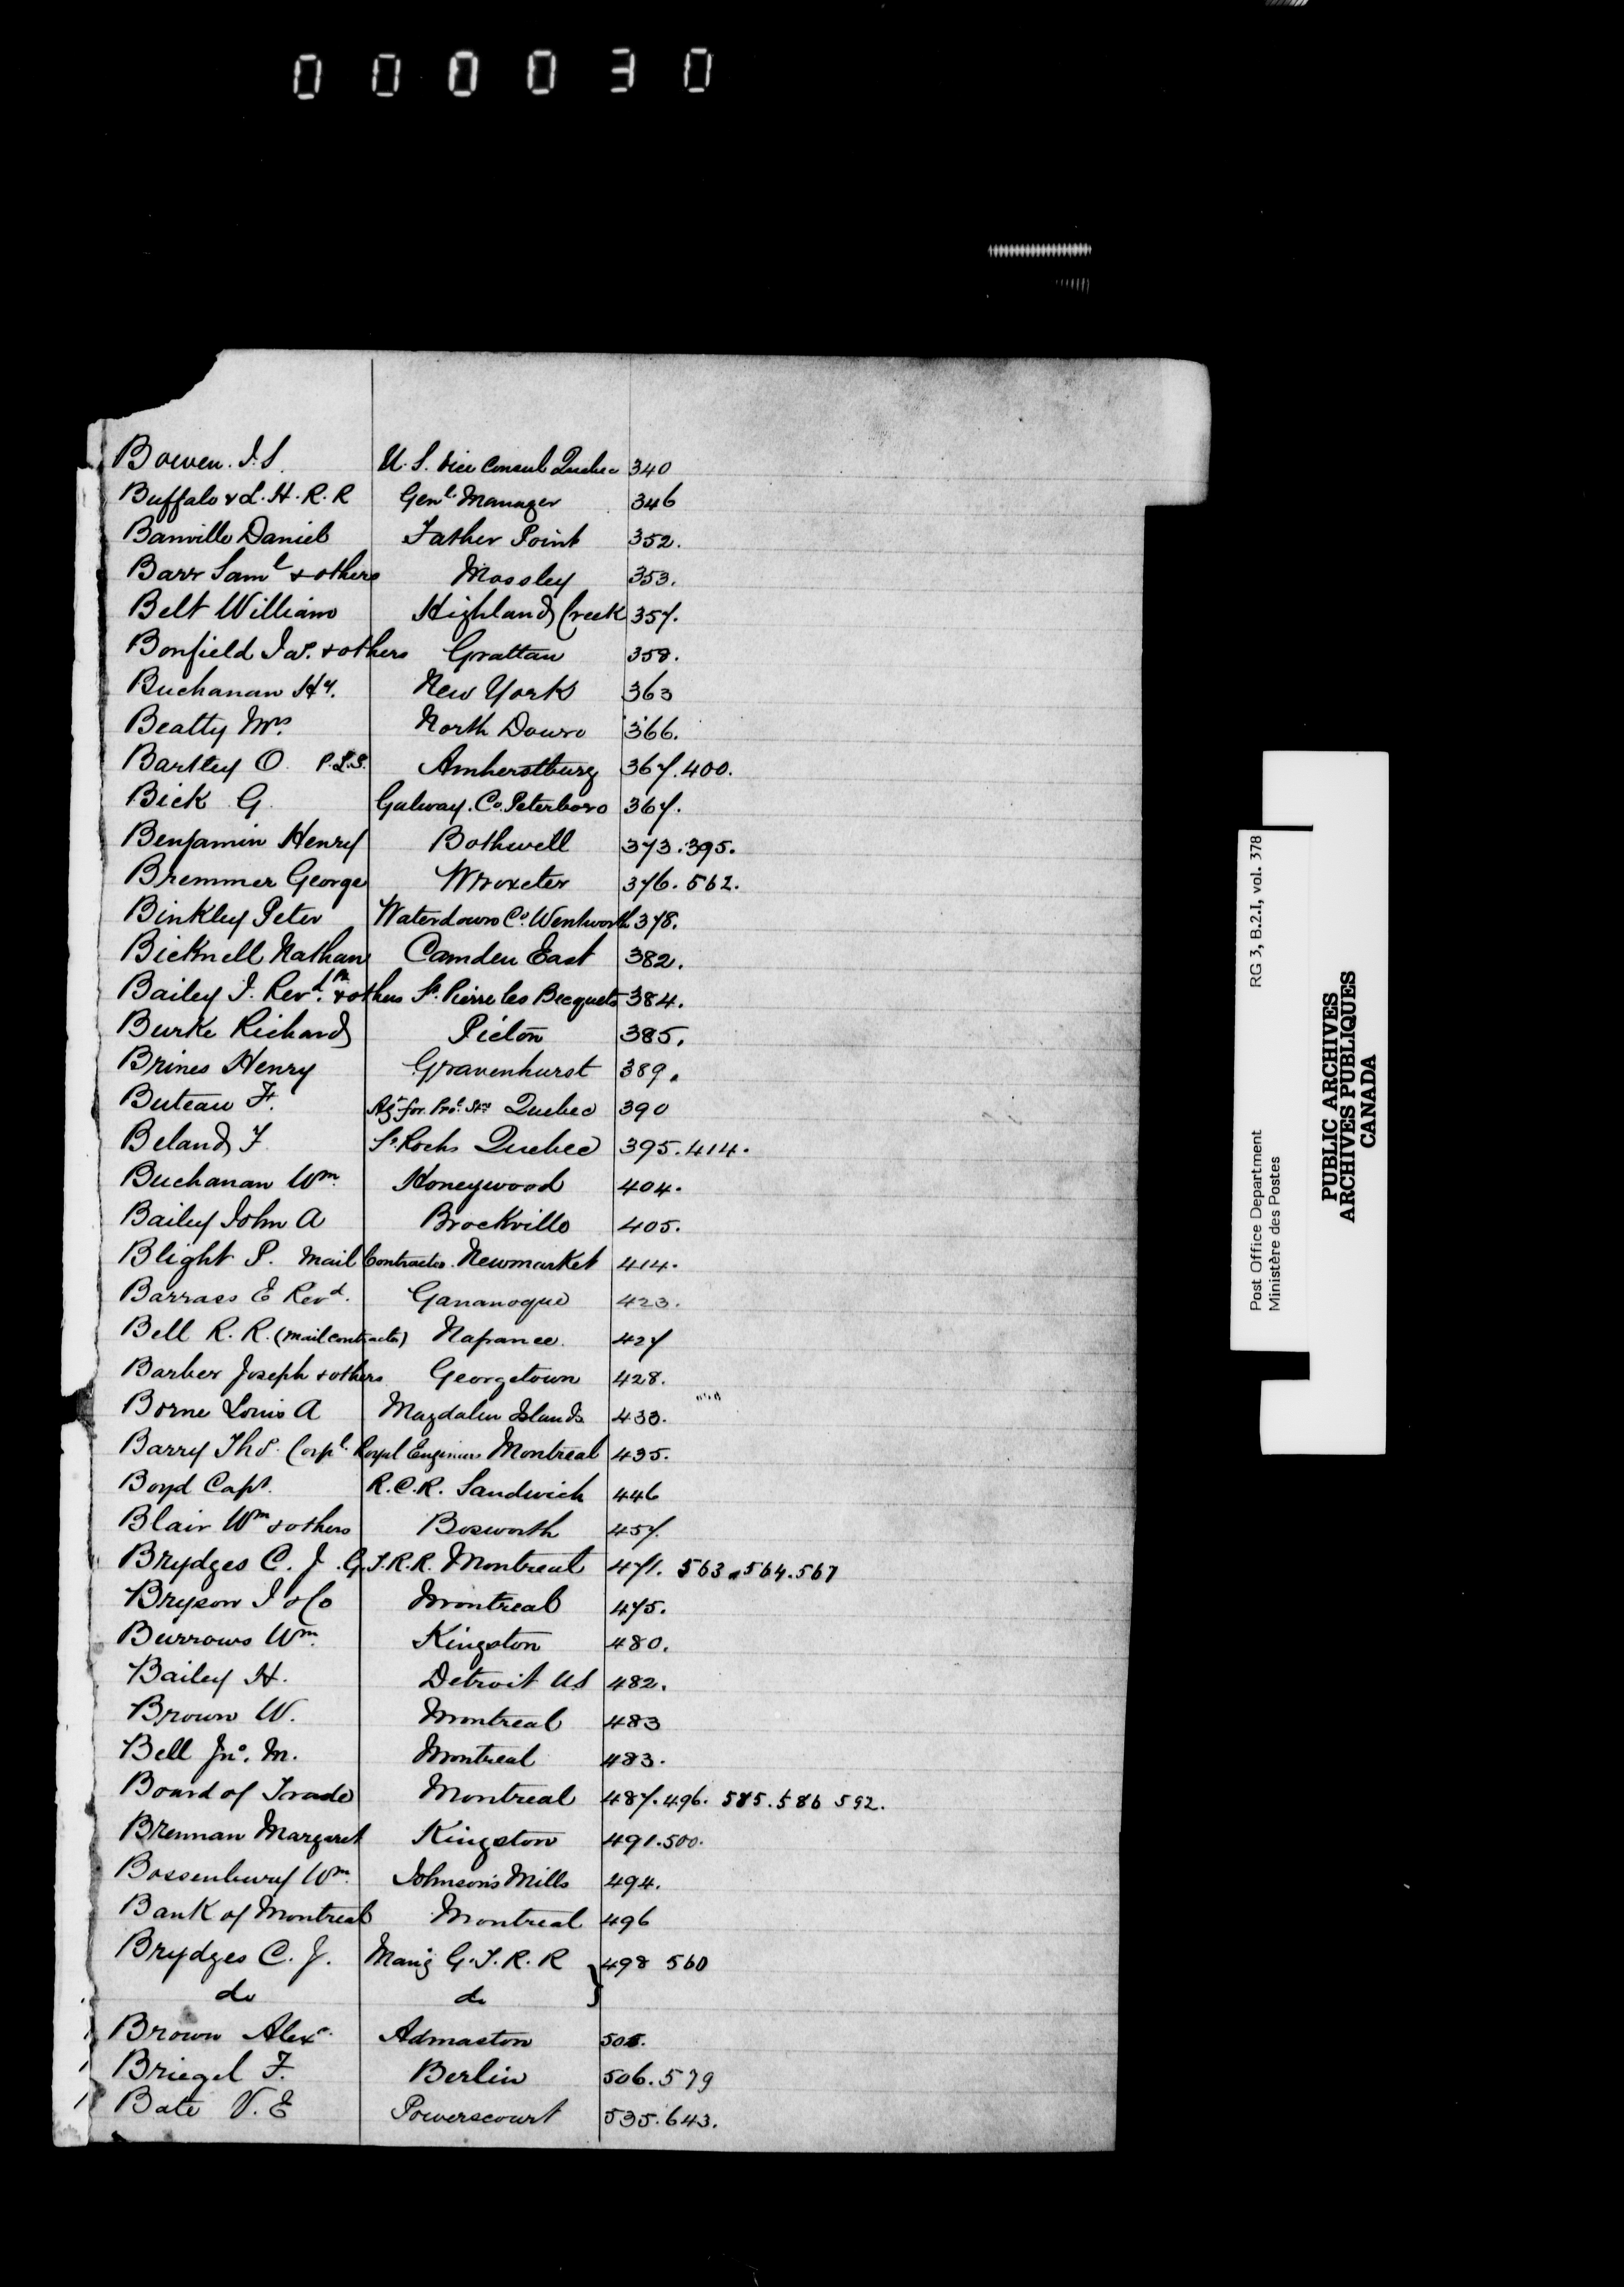 000030
Bowen. J. S. U. S. Vice Consul Quebec 340
Buffalo & L. H. R. R Genl. Manager 346
Banville Daniel Father Point 352.
Barr Saml & others Mossley 353.
Belt William Highland Creek 357.
Bonfield Jas. & others Grattan 358.
Buchanan Hy. New York 363
Beatty Mrs. North Douro 366.
Bartley O. P.L.S. Amherstburg 367. 400.
Bick G. Galway. Co. Peterboro 367.
Benjamin Henry Bothwell 373. 395.
Bremmer George Wroxeter 376. 562.
Binkley Peter Waterdown Co. Wentworth 378.
Bicknell Nathan Camden East 382.
Bailey J. Revd. & others St. Pierre les Becquets 384.
Burke Richard Picton 385.
Brines Henry Gravenhurst 389.
Buteau F. Agt. for Quebec 390
Beland F St. Rochs Quebec 395. 414.
Buchanan Wm. Honeywood 404.
Bailey John A Brockville 405.
Blight P. Mail Contractor. Newmarket 414.
Barrass E Revd. Gananoque 423.
Bell R. R. (Mail contractor) Napanee. 427
Barber Joseph & others Georgetown 428.
Borne Louis A Magdalen Islands 433.
Barry Thos. Corpl. Royal Engineers Montreal 435.
Boyd Capt. R.C.R. Sandwich 446
Blair Wm & others Bosworth 457.
Brydges C. J. G.T.R.R. Montreal 471. 563. 564. 567
Bryson J & Co Montreal 475.
Burrows Wm. Kingston 480.
Bailey H. Detroit US 482.
Brown W. Montreal 483
Bell Jno. M. Montreal 483.
Board of Trade Montreal 487. 496. 585. 586 592.
Brennan Margaret Kingston 491. 500.
Bossenbury Wm. Johnson's Mills 494.
Bank of Montreal Montreal 496
Brydges C. J. Mang G. T. R. R } 498 560
do do
Brown Alexr. Admaston
Briegel F. Berlin 506. 579
Bate V. E Powerscourt 535. 643.
Post Office Department RG 3, B.2.I, vol. 378
Ministère des Postes
PUBLIC ARCHIVES
ARCHIVES PUBLIQUES
CANADA